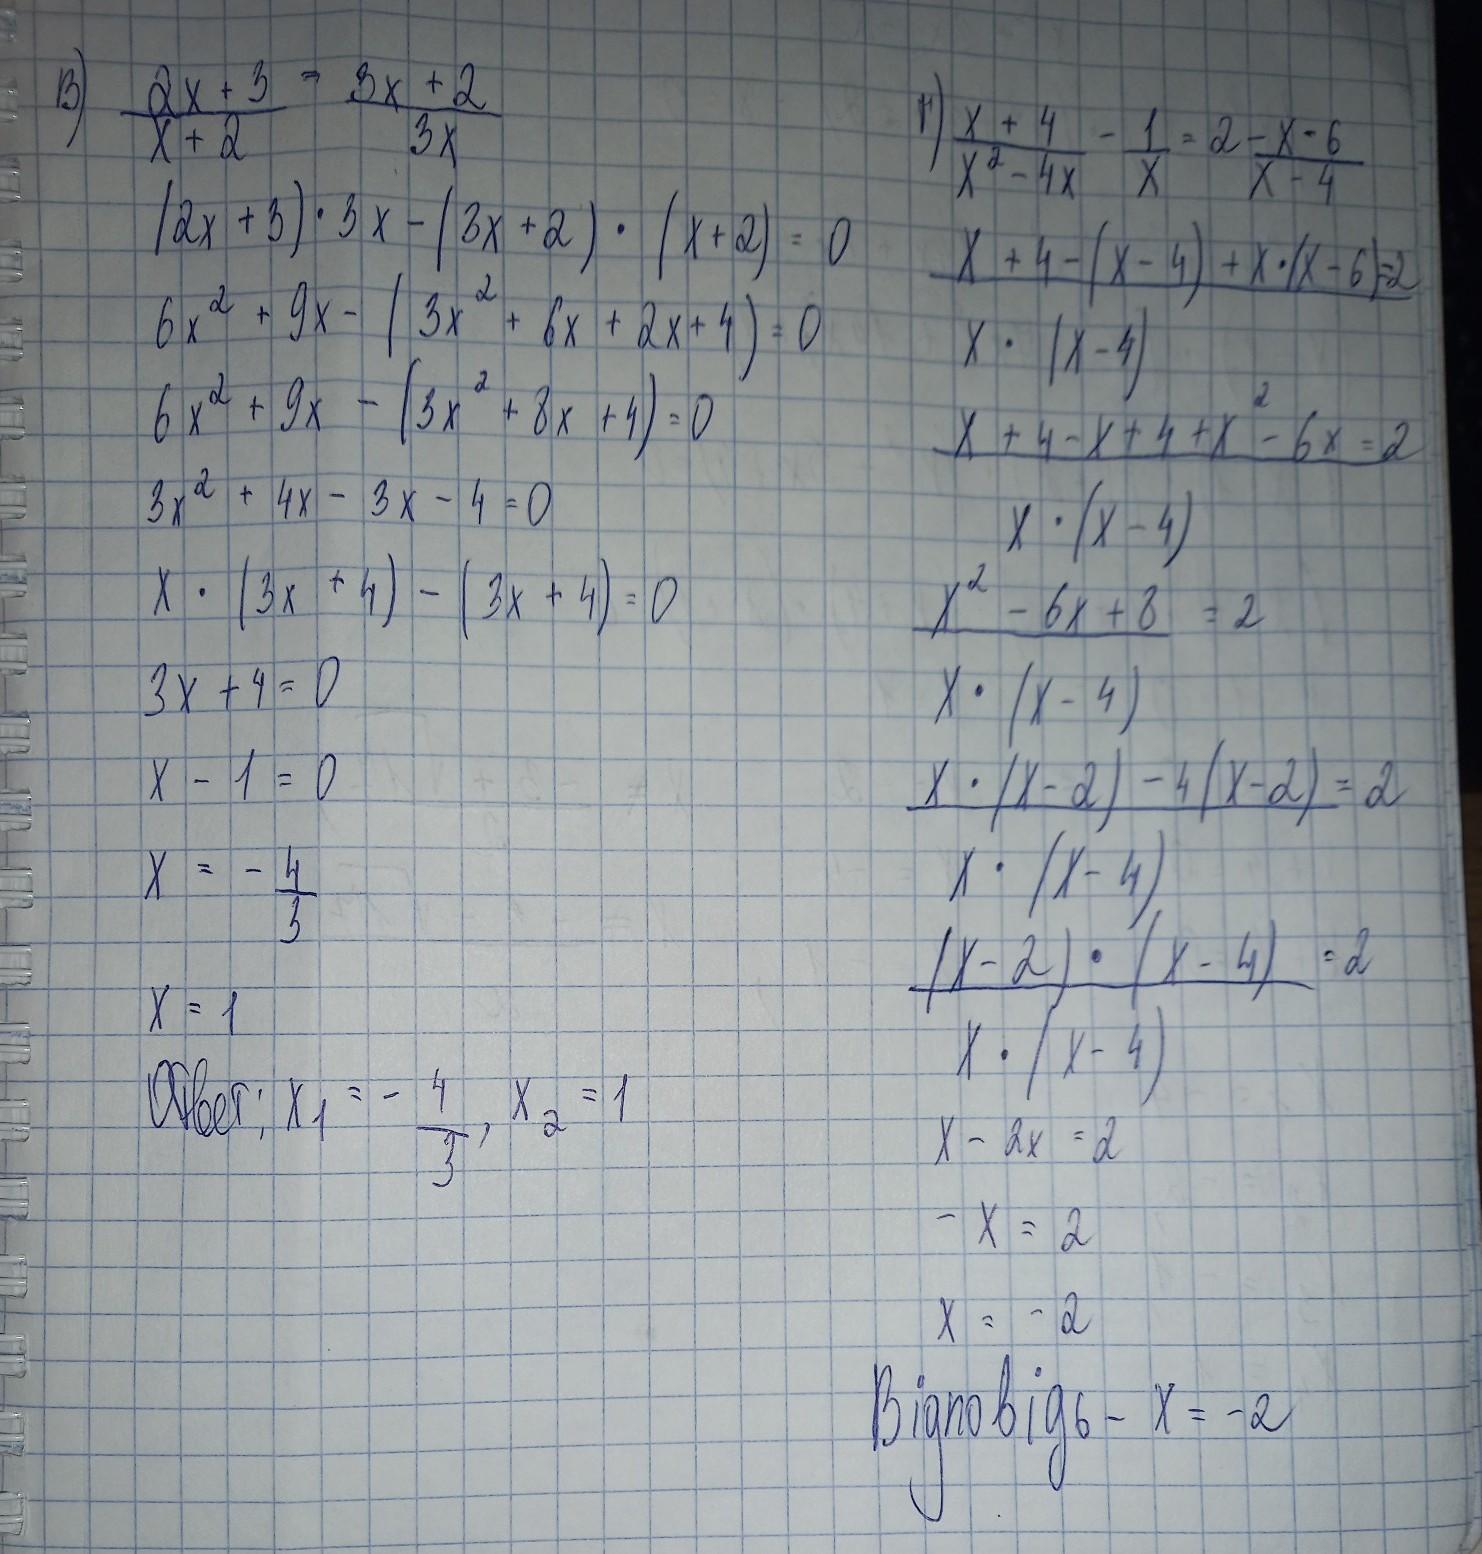 в) (2x + 3)/(x + 2) = (3x + 2)/(3x)
(2x + 3) · 3x - (3x + 2) · (x + 2) = 0
6x² + 9x - (3x² + 6x + 2x + 4) = 0
6x² + 9x - (3x² + 8x + 4) = 0
3x² + 4x - 3x - 4 = 0
x · (3x + 4) - (3x + 4) = 0
3x + 4 = 0
x - 1 = 0
x = - 4/3
x = 1
Ответ; x₁ = - 4/3, x₂ = 1
г) (x + 4)/(x² - 4x) - 1/x = 2 - (x - 6)/(x - 4)
(x + 4 - (x - 4) + x · (x - 6) = 2
x · (x - 4)
x + 4 - x + 4 + x² - 6x = 2
x · (x - 4)
x² - 6x + 8 = 2
x · (x - 4)
x · (x - 2) - 4(x - 2) = 2
x · (x - 4)
(x - 2) · (x - 4) = 2
x · (x - 4)
x - 2x = 2
- x = 2
x = - 2
Відповідь - x = -2